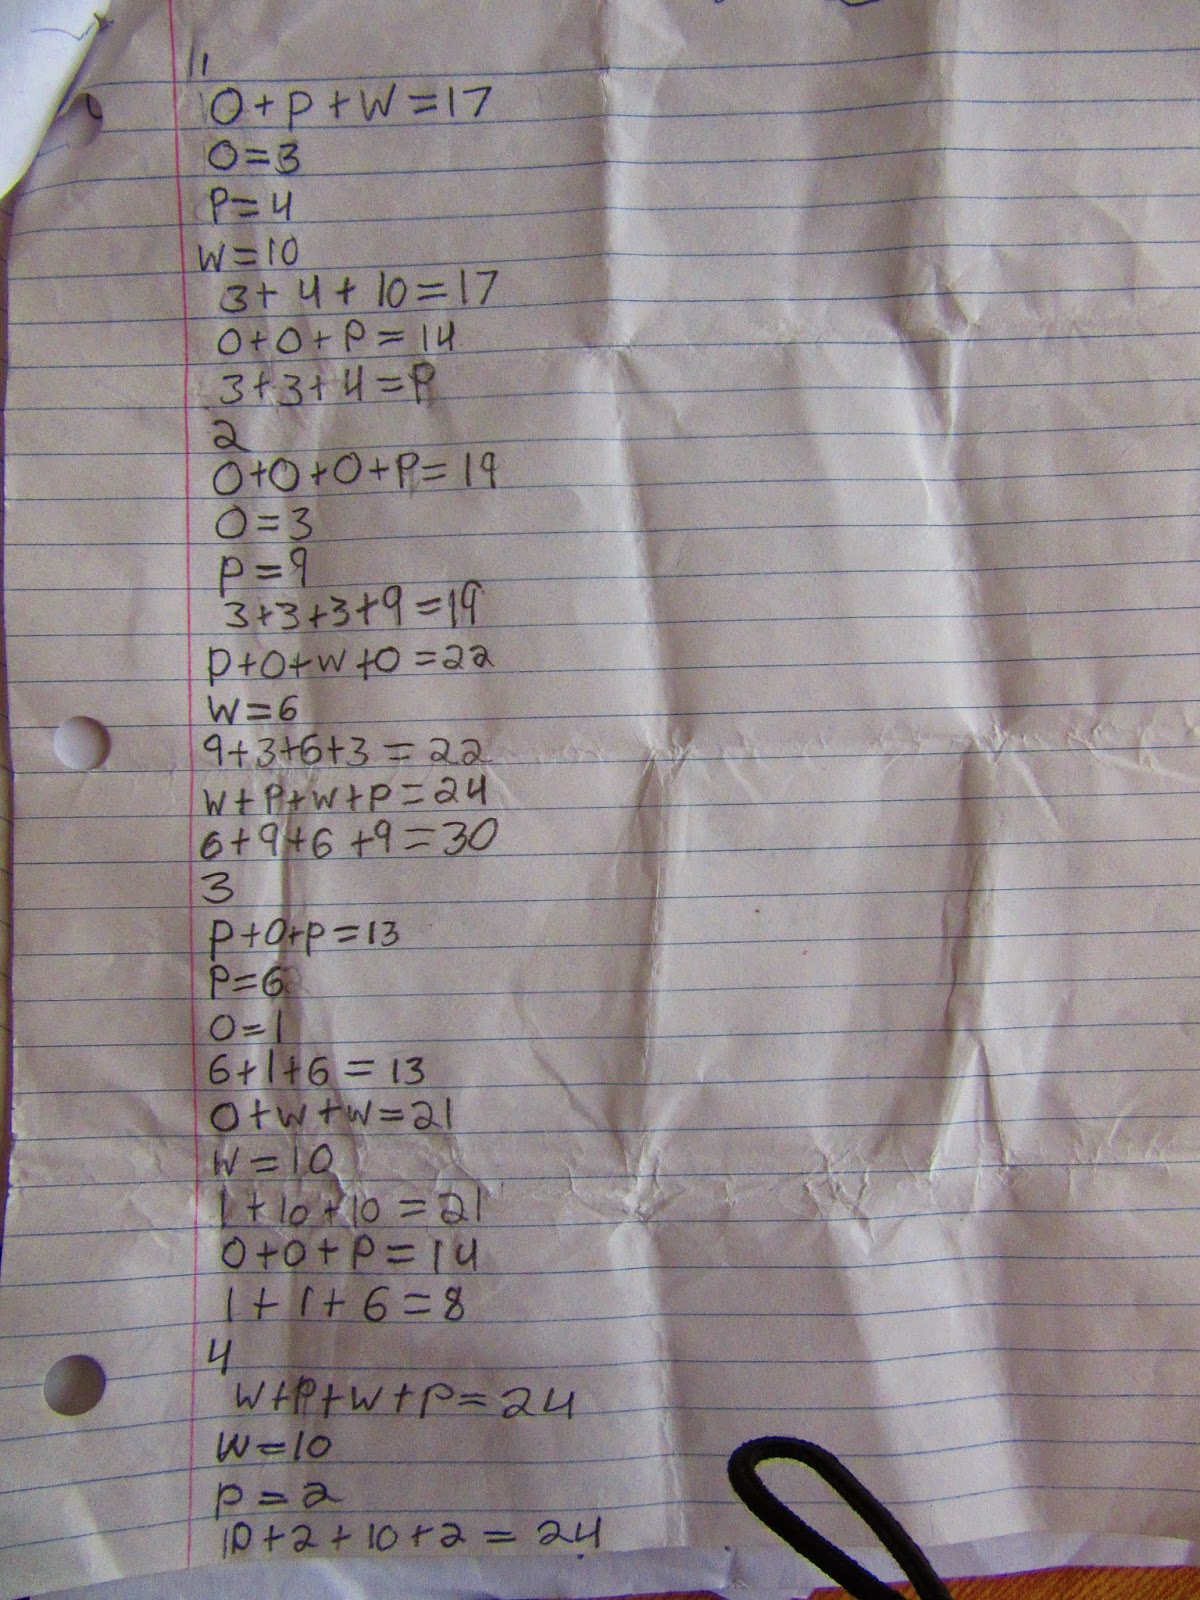 11
O+P+W=17
O=3
P=4
W=10
3+4+10=17
O+O+P=14
3+3+4=P
2
O+O+O+P=19
O=3
P=9
3+3+3+9=19
P+O+W+O=22
W=6
9+3+6+3=22
W+P+W+P=24
6+9+6+9=30
3
P+O+P=13
P=6
O=1
6+1+6=13
O+W+W=21
W=10
1+10+10=21
O+O+P=14
1+1+6=8
4
W+P+W+P=24
W=10
P=2
10+2+10+2=24